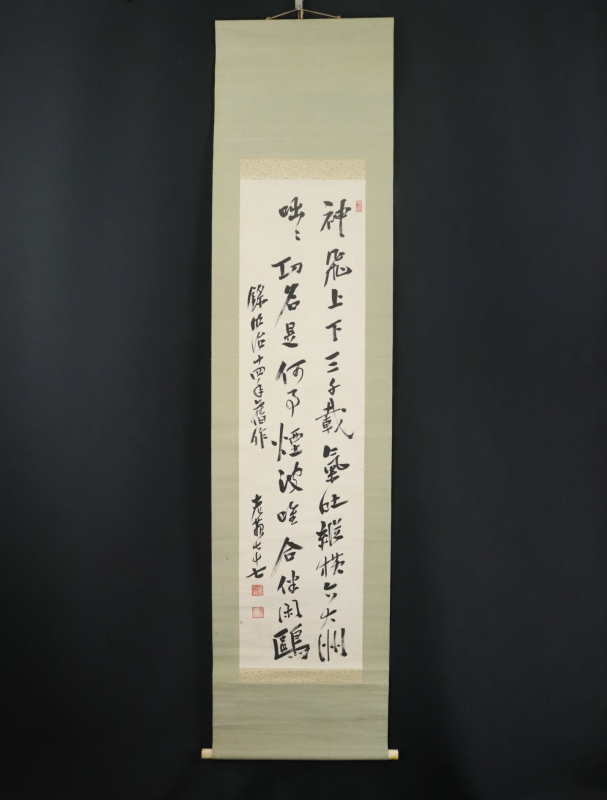 神飛上下三千載氣旺縱橫六大洲
咄々功名是何事煙波唯合伴閑鷗
錄明治十四年舊作　老蘇七十七